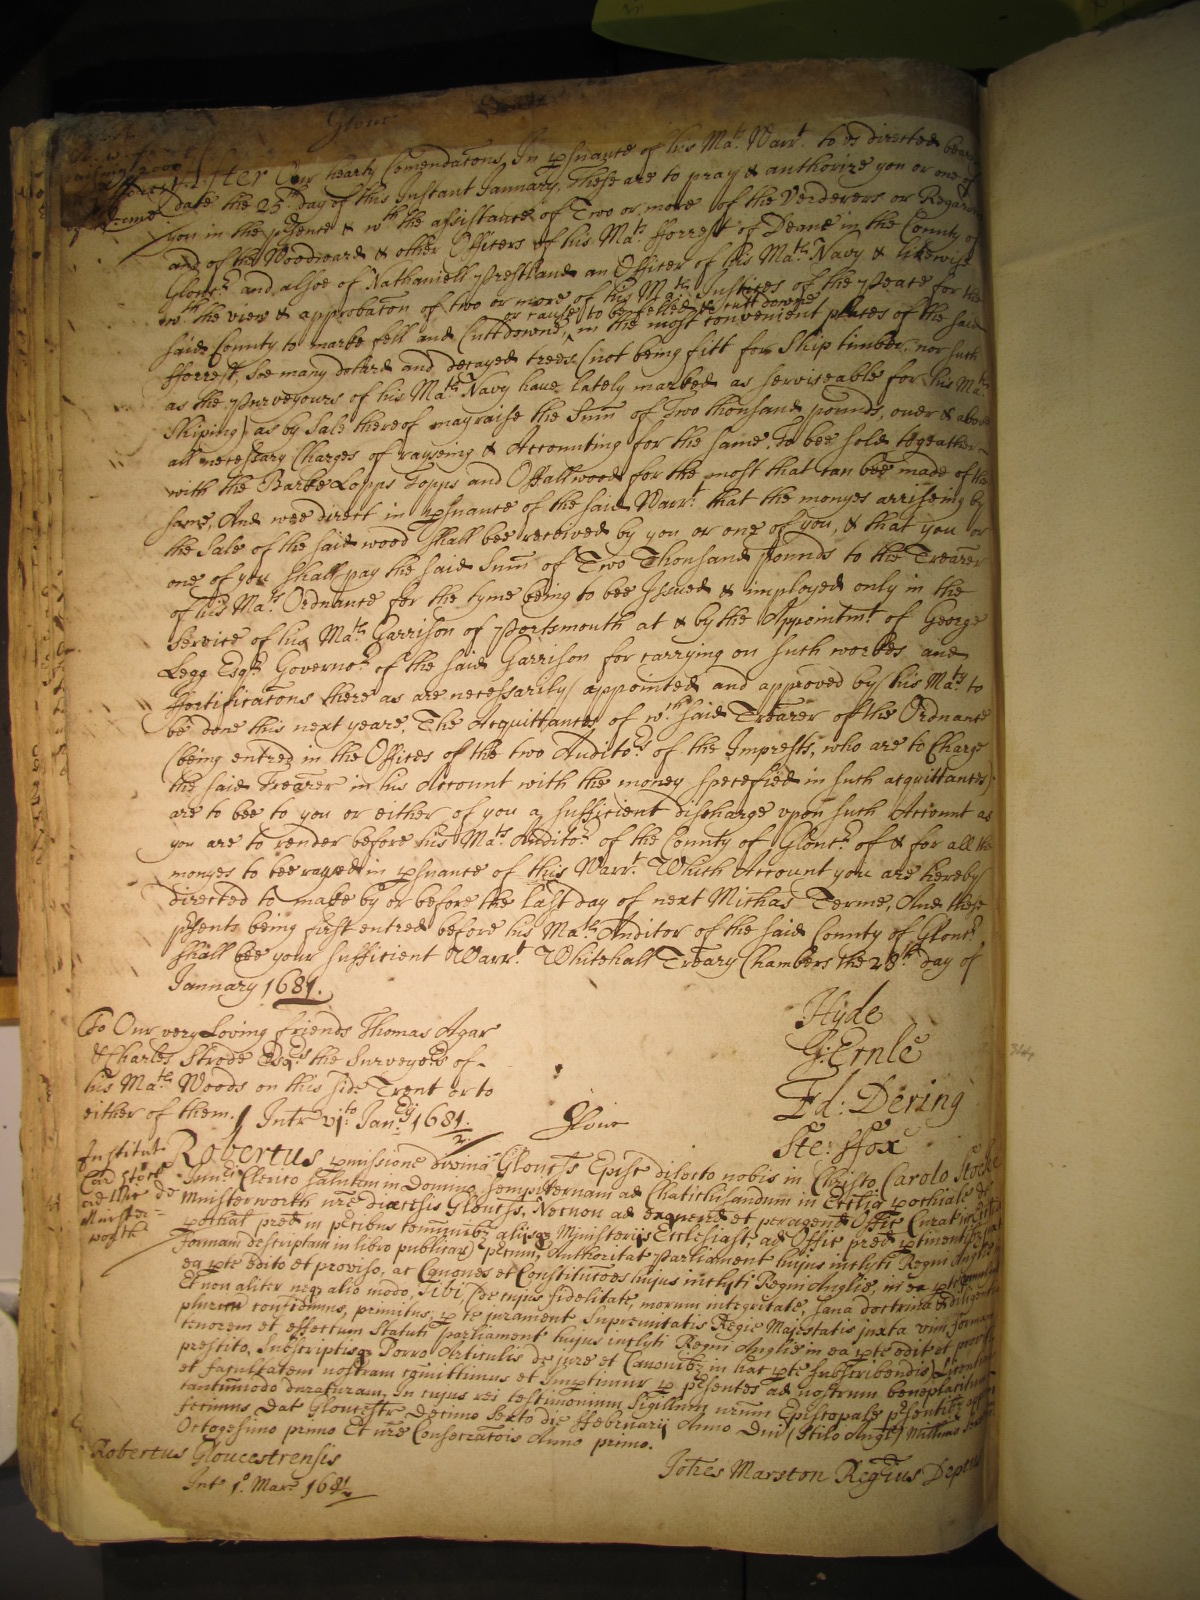 Glouc
After Our hearty Comendatons, In psuance of his Mats. Warrt. to us directed beareing
date the 25th day of this Instant January, These are to pray & authorize you or one of
you in the psence & wth the assistance of Two or more of the Verderers or Regard
and of the Woodward & other Officers of his Mats. fforrest of Deane in the County of
Gloucr. and alsoe of Nathaniell Prestland an Officer of his Mats. Navy & likewise
wth the view & approbaton of two or more of his Mats. Justices of the Peace for the
or cause to be felled & cutt downe
said County to marke fell and Cuttdowne, in the most convenient places of the said
fforrest, soe many dotard and decayed trees (not being fitt for Ship timber, nor such
as the Purveyours of his Mats. Navy have lately marked as serviseable for his Mats.
Shiping) as by Sale thereof may raise the Sum̄ of Two thousand pounds, over & above
all necessary Charges of rayseing & Accounting for the same, To bee sold togeather
with the Barke Lopps Topps and Offallwood for the most that can bee made of the
same, And wee direct in psuance of the said Warrt. that the monyes arriseing by
the Sale of the said wood shall bee received by you or one of you, & that you or
one of you shall pay the said Sum̄ of Two Thousand pounds to the Trea͠rer
of his Mats. Ordnance for the tyme being to bee Issued & imployed only in the
Service of his Mats. Garrison of Portsmouth at & by the Appointmt. of George
Legg Esqr. Governor. of the said Garrison for carrying on such workes and
ffortificatons there as are necessarily appointed and approved by his Maty. to
be done this next yeare, The Acquittances of wch. said Trea͠rer of the Ordnance
(being entred in the Offices of the two Auditors of the Imprests, who are to Charge
the said Trea͠rer in his Account with the money specefied in such acquittances)
are to bee to you or either of you a sufficient discharge vpon such Account as
you are to render before his Mats. Auditor. of the County of Gloucr. of & for all the
monyes to bee raysed in psuance of this Warrt. Which Account you are hereby
directed to make by or before the last day of next Michas Terme, And these
psents being first entred before his Mats. Auditor of the said County of Gloucr.
shall bee your sufficient Warrt. Whitehall Trea͠ry Chambers the 28th day of
January 1681.
Hyde
J: Ernle
Ed: Dering
Ste: ffox
To Our very Loving friends Thomas Agar
& Charles Strode Esqrs the Surveyors of
his Mats. Woods on this side Trent or to
either of them. Intr vjto. Janry 1681/2.
Glouc
Institut
Car Stock
Cellie de
Minster-
worth
Robertus pmissione divina Gloucestr Episc dilecto nobis in Christo Carolo Stocke
Clerico salutem in Domino sempiternam ad Chatichisandum in Ecclia pochiale de
Minsterworth nre diocesis Gloucestr, Necnon ad exequend et peragend Offic Curat
pochial pred in pcibus communibz alijsqz Ministerijs Ecclesiast, ad Offic pred ptinent
formam descriptam in libro publicar precum, Authoritat Parliament hujus inclyti Regni Anglie in
ea pte edito et proviso, ac Canones et Constitutoes hujus inclyti Regni Anglie, in ea pte
Et non aliter neqz alio modo, Tibi, (de cujus fidelitate, morum integritate, sana doctrina & diligentia
plurim confidimus, primitus p te jurament Supremitatis Regie Majestatis juxta vim formam
tenorem et effectum Statuti Parliament hujus inclyti Regni Anglie in ea pte edit et
prestito, Subscriptisqz Porro Articulis de jure et Canonibz in hac pte subscribendis) Licentiam
et facultatem nostram comittimus et Impertimur p psentes ad nostrum beneplacitum
tantummodo duraturam, In cujus rei testimonium Sigillum nrum Episcopale psentibz
fecimus Dat Gloucestr Decimo Sexto die ffebruarij Anno Dni (Stilo Angl)
Octogesimo primo Et nre Consecratois Anno primo.
Robertus Gloucestrensis
Johes Marston Regrius Deputus
Int 1o. Mar: 1681/2